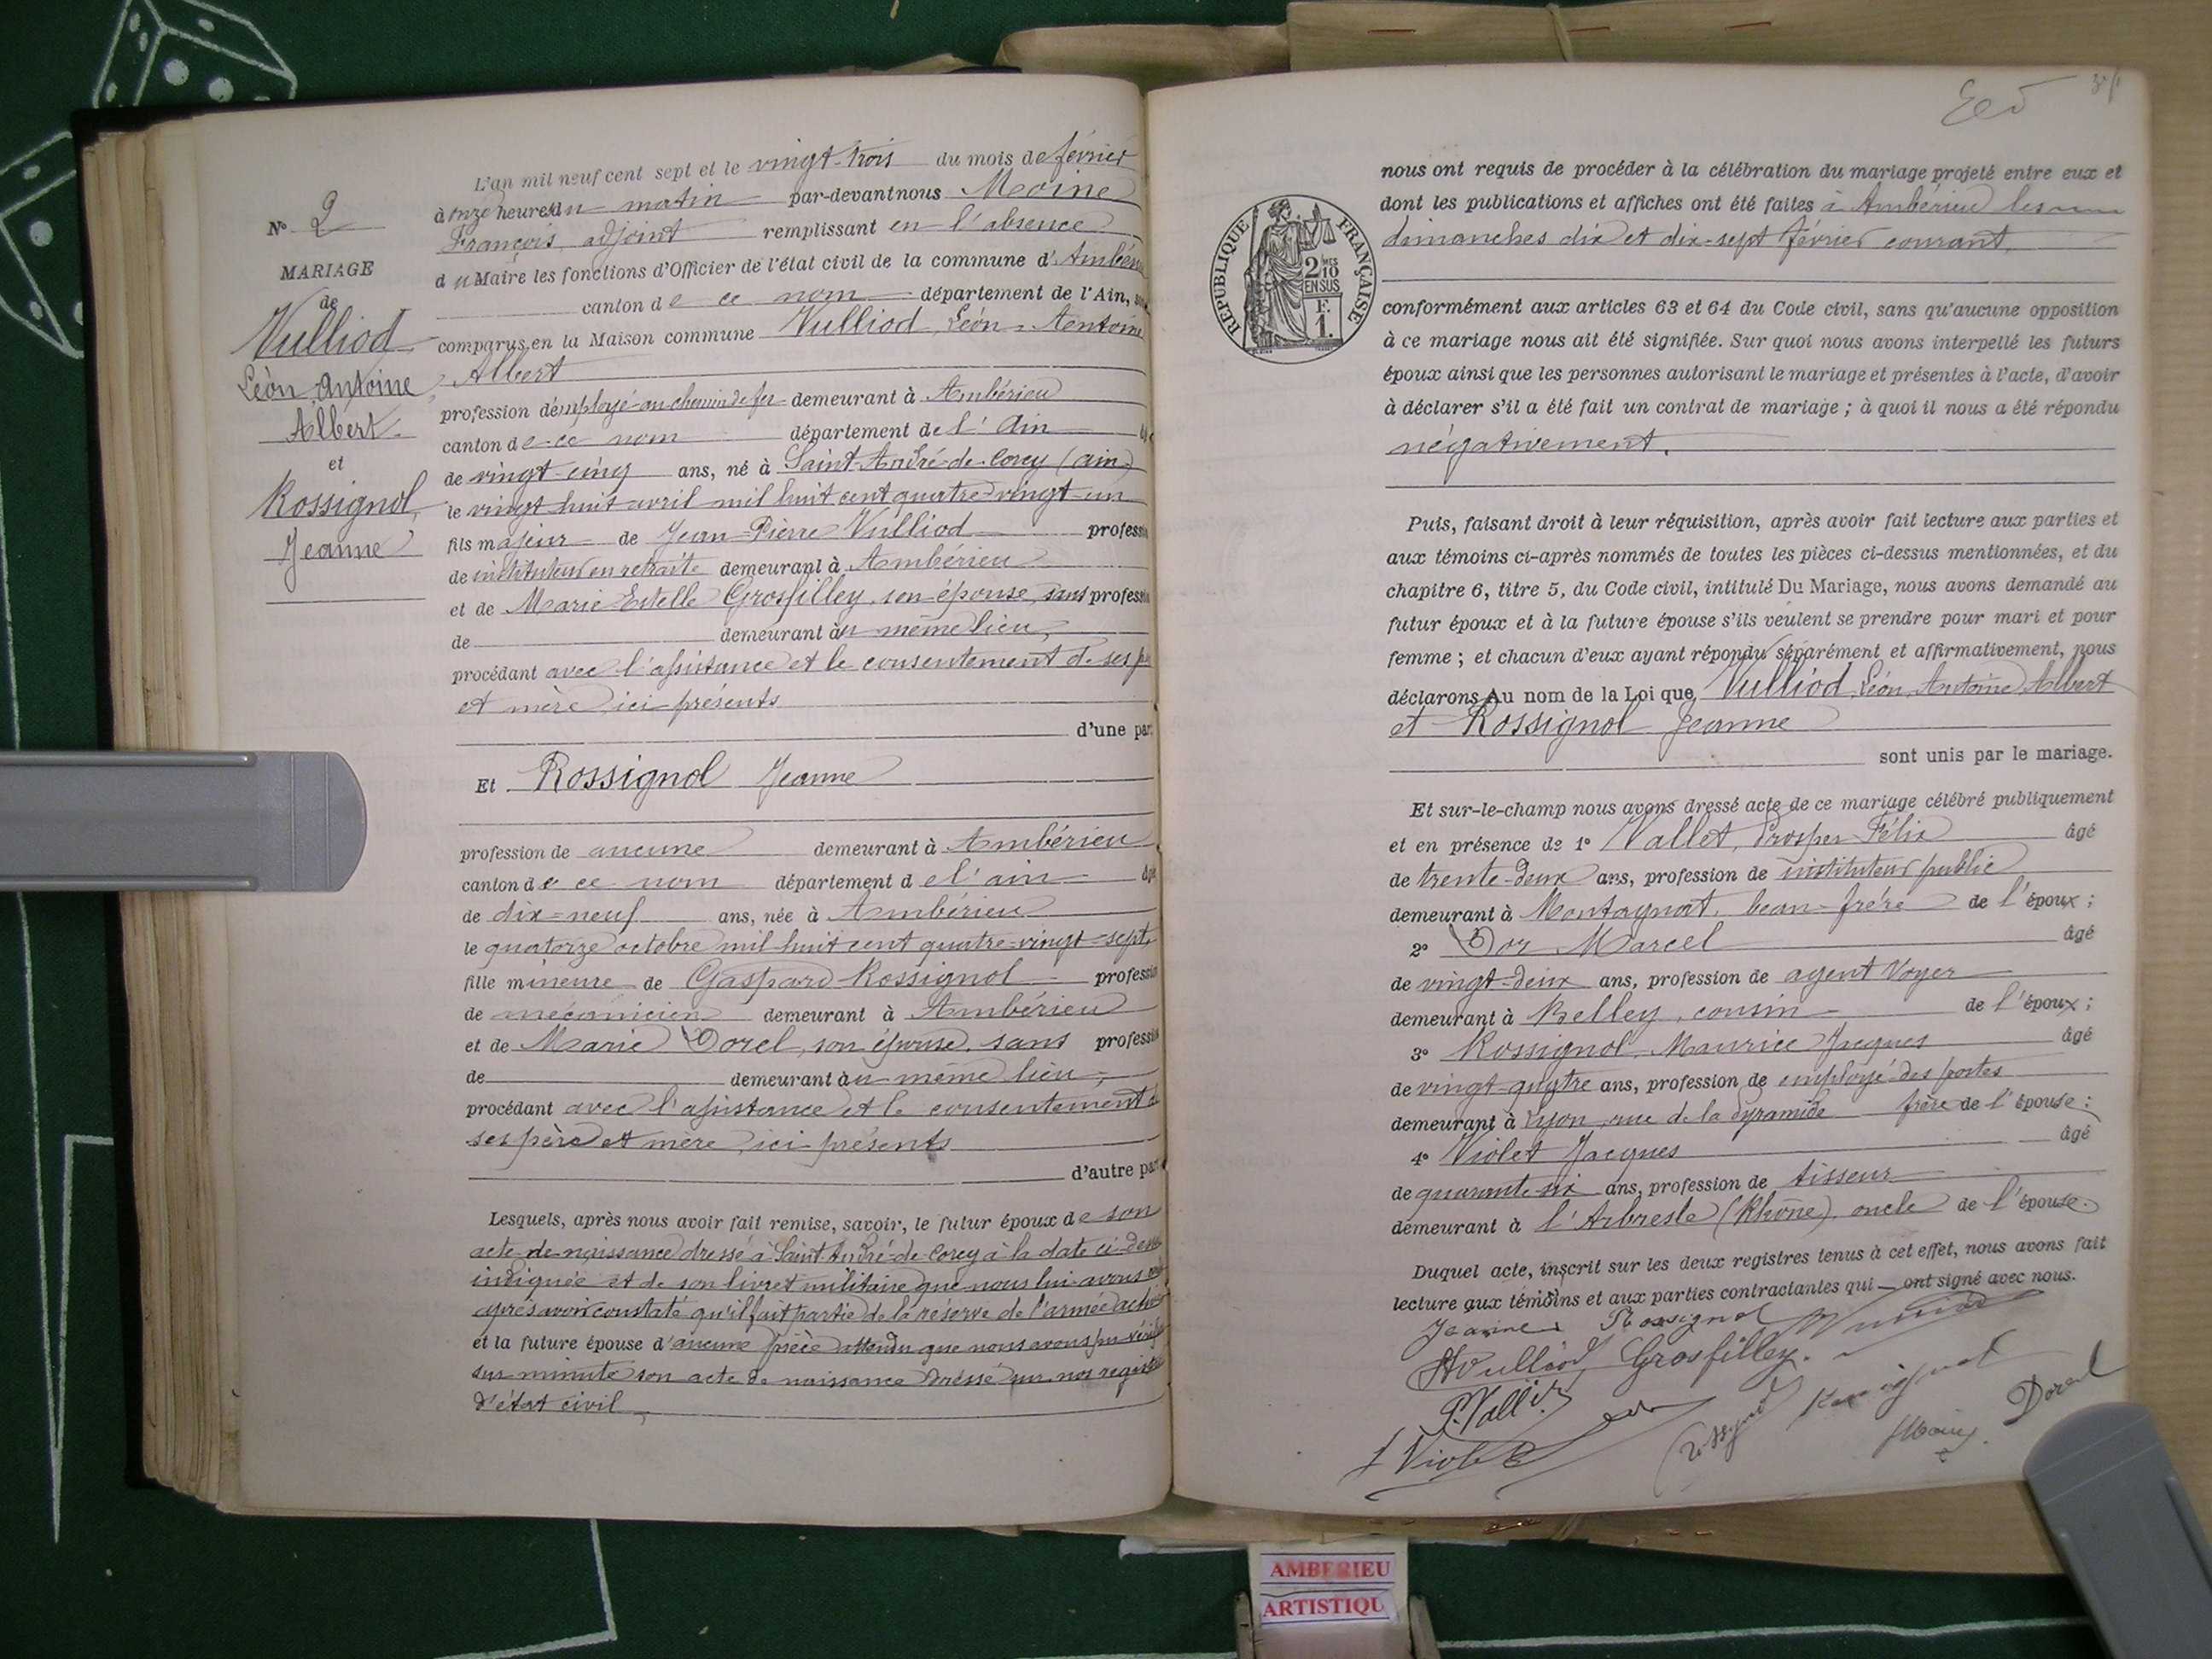 L'an mil neuf cent sept et le vingt-trois du mois de février
à onze heures du matin par-devant nous Moine
François, adjoint remplissant en l'absence
du Maire les fonctions d'Officier de l'état civil de la commune d'Ambérieu
canton de ce nom département de l'Ain,
comparus en la Maison commune Vulliod, Léon-Antoine
Albert
profession d'employé au chemin de fer demeurant à Ambérieu
canton de ce nom département de l'Ain
de vingt-cinq ans, né à Saint-André-de-Corcy (ain)
le vingt huit avril mil huit cent quatre-vingt-un
fils majeur de Jean-Pierre Vulliod profession
de instituteur en retraite demeurant à Ambérieu
et de Marie Estelle Grosfilley, son épouse, sans profession
de demeurant au même lieu,
procédant avec l'assistance et le consentement de ses
et mère, ici présents
d'une part
Et Rossignol Jeanne
profession de aucune demeurant à Ambérieu
canton de ce nom département de l'ain âgé
de dix-neuf ans, née à Ambérieu
le quatorze octobre mil huit cent quatre-vingt-sept,
fille mineure de Gaspard Rossignol profession
de mécanicien demeurant à Ambérieu
et de Marie Dorel, son épouse, sans profession
de demeurant au même lieu,
procédant avec l'assistance et le consentement de
ses père et mère, ici présents
d'autre part
Lesquels, après nous avoir fait remise, savoir, le futur époux de son
acte de naissance dressé à Saint-André-de-Corcy à la date ci-dessus
indiquée et de son livret militaire que nous lui avons
après avoir constaté qu'il fait partie de la réserve de l'armée active
et la future épouse d'aucune pièce attendu que nous avons pu vérifier
sur minute son acte de naissance dressé sur nos registres
d'état civil,
N° 2
MARIAGE
de
Vulliod
Léon Antoine
Albert
et
Rossignol,
Jeanne
nous ont requis de procéder à la célébration du mariage projeté entre eux et
dont les publications et affiches ont été faites à Ambérieu les
dimanches dix et dix-sept février courant,
conformément aux articles 63 et 64 du Code civil, sans qu'aucune opposition
à ce mariage nous ait été signifiée. Sur quoi nous avons interpellé les futurs
époux ainsi que les personnes autorisant le mariage et présentes à l'acte, d'avoir
à déclarer s'il a été fait un contrat de mariage ; à quoi il nous a été répondu
négativement.
Puis, faisant droit à leur réquisition, après avoir fait lecture aux parties et
aux témoins ci-après nommés de toutes les pièces ci-dessus mentionnées, et du
chapitre 6, titre 5, du Code civil, intitulé Du Mariage, nous avons demandé au
futur époux et à la future épouse s'ils veulent se prendre pour mari et pour
femme ; et chacun d'eux ayant répondu séparément et affirmativement, nous
déclarons Au nom de la Loi que Vulliod Léon Antoine Albert
et Rossignol Jeanne
sont unis par le mariage.
Et sur-le-champ nous avons dressé acte de ce mariage célébré publiquement
et en présence de 1° Vallet, Prosper-Félix âgé
de trente-deux ans, profession de instituteur public
demeurant à Montagnat, beau-frère de l'époux ;
2° Dor Marcel âgé
de vingt-deux ans, profession de agent Voyer
demeurant à Belley, cousin de l'époux ;
3° Rossignol Maurice Jacques âgé
de vingt-quatre ans, profession de employé des postes
demeurant à Lyon, rue de la Pyramide frère de l'épouse ;
4° Violet Jacques âgé
de quarante six ans, profession de tisseur
demeurant à l'Arbresle (Rhône), oncle de l'épouse.
Duquel acte, inscrit sur les deux registres tenus à cet effet, nous avons fait
lecture aux témoins et aux parties contractantes qui ont signé avec nous.
Jeanne Rossignol
Vulliod Grosfilley.
P. Vallet
J Violet
Rossignol
Dorel
REPUBLIQUE FRANÇAISE
2 MES
10
EN SUS
F.
1.
AMBERIEU
ARTISTIQU